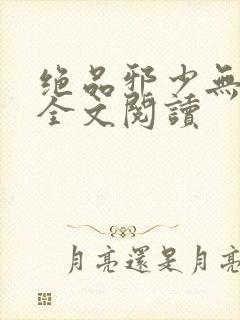 绝品邪少無
全文閱讀
月亮還是月亮